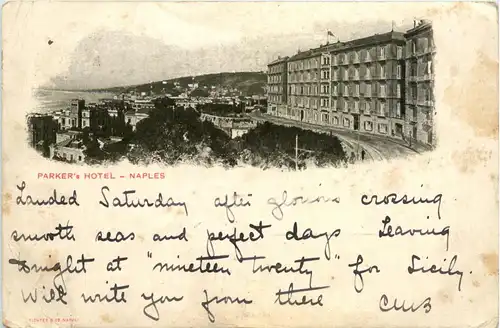 PARKER's HOTEL - NAPLES
Landed Saturday after glorious crossing
smooth seas and perfect days Leaving
tonight at "nineteen twenty" for Sicily.
Will write you from there CWB